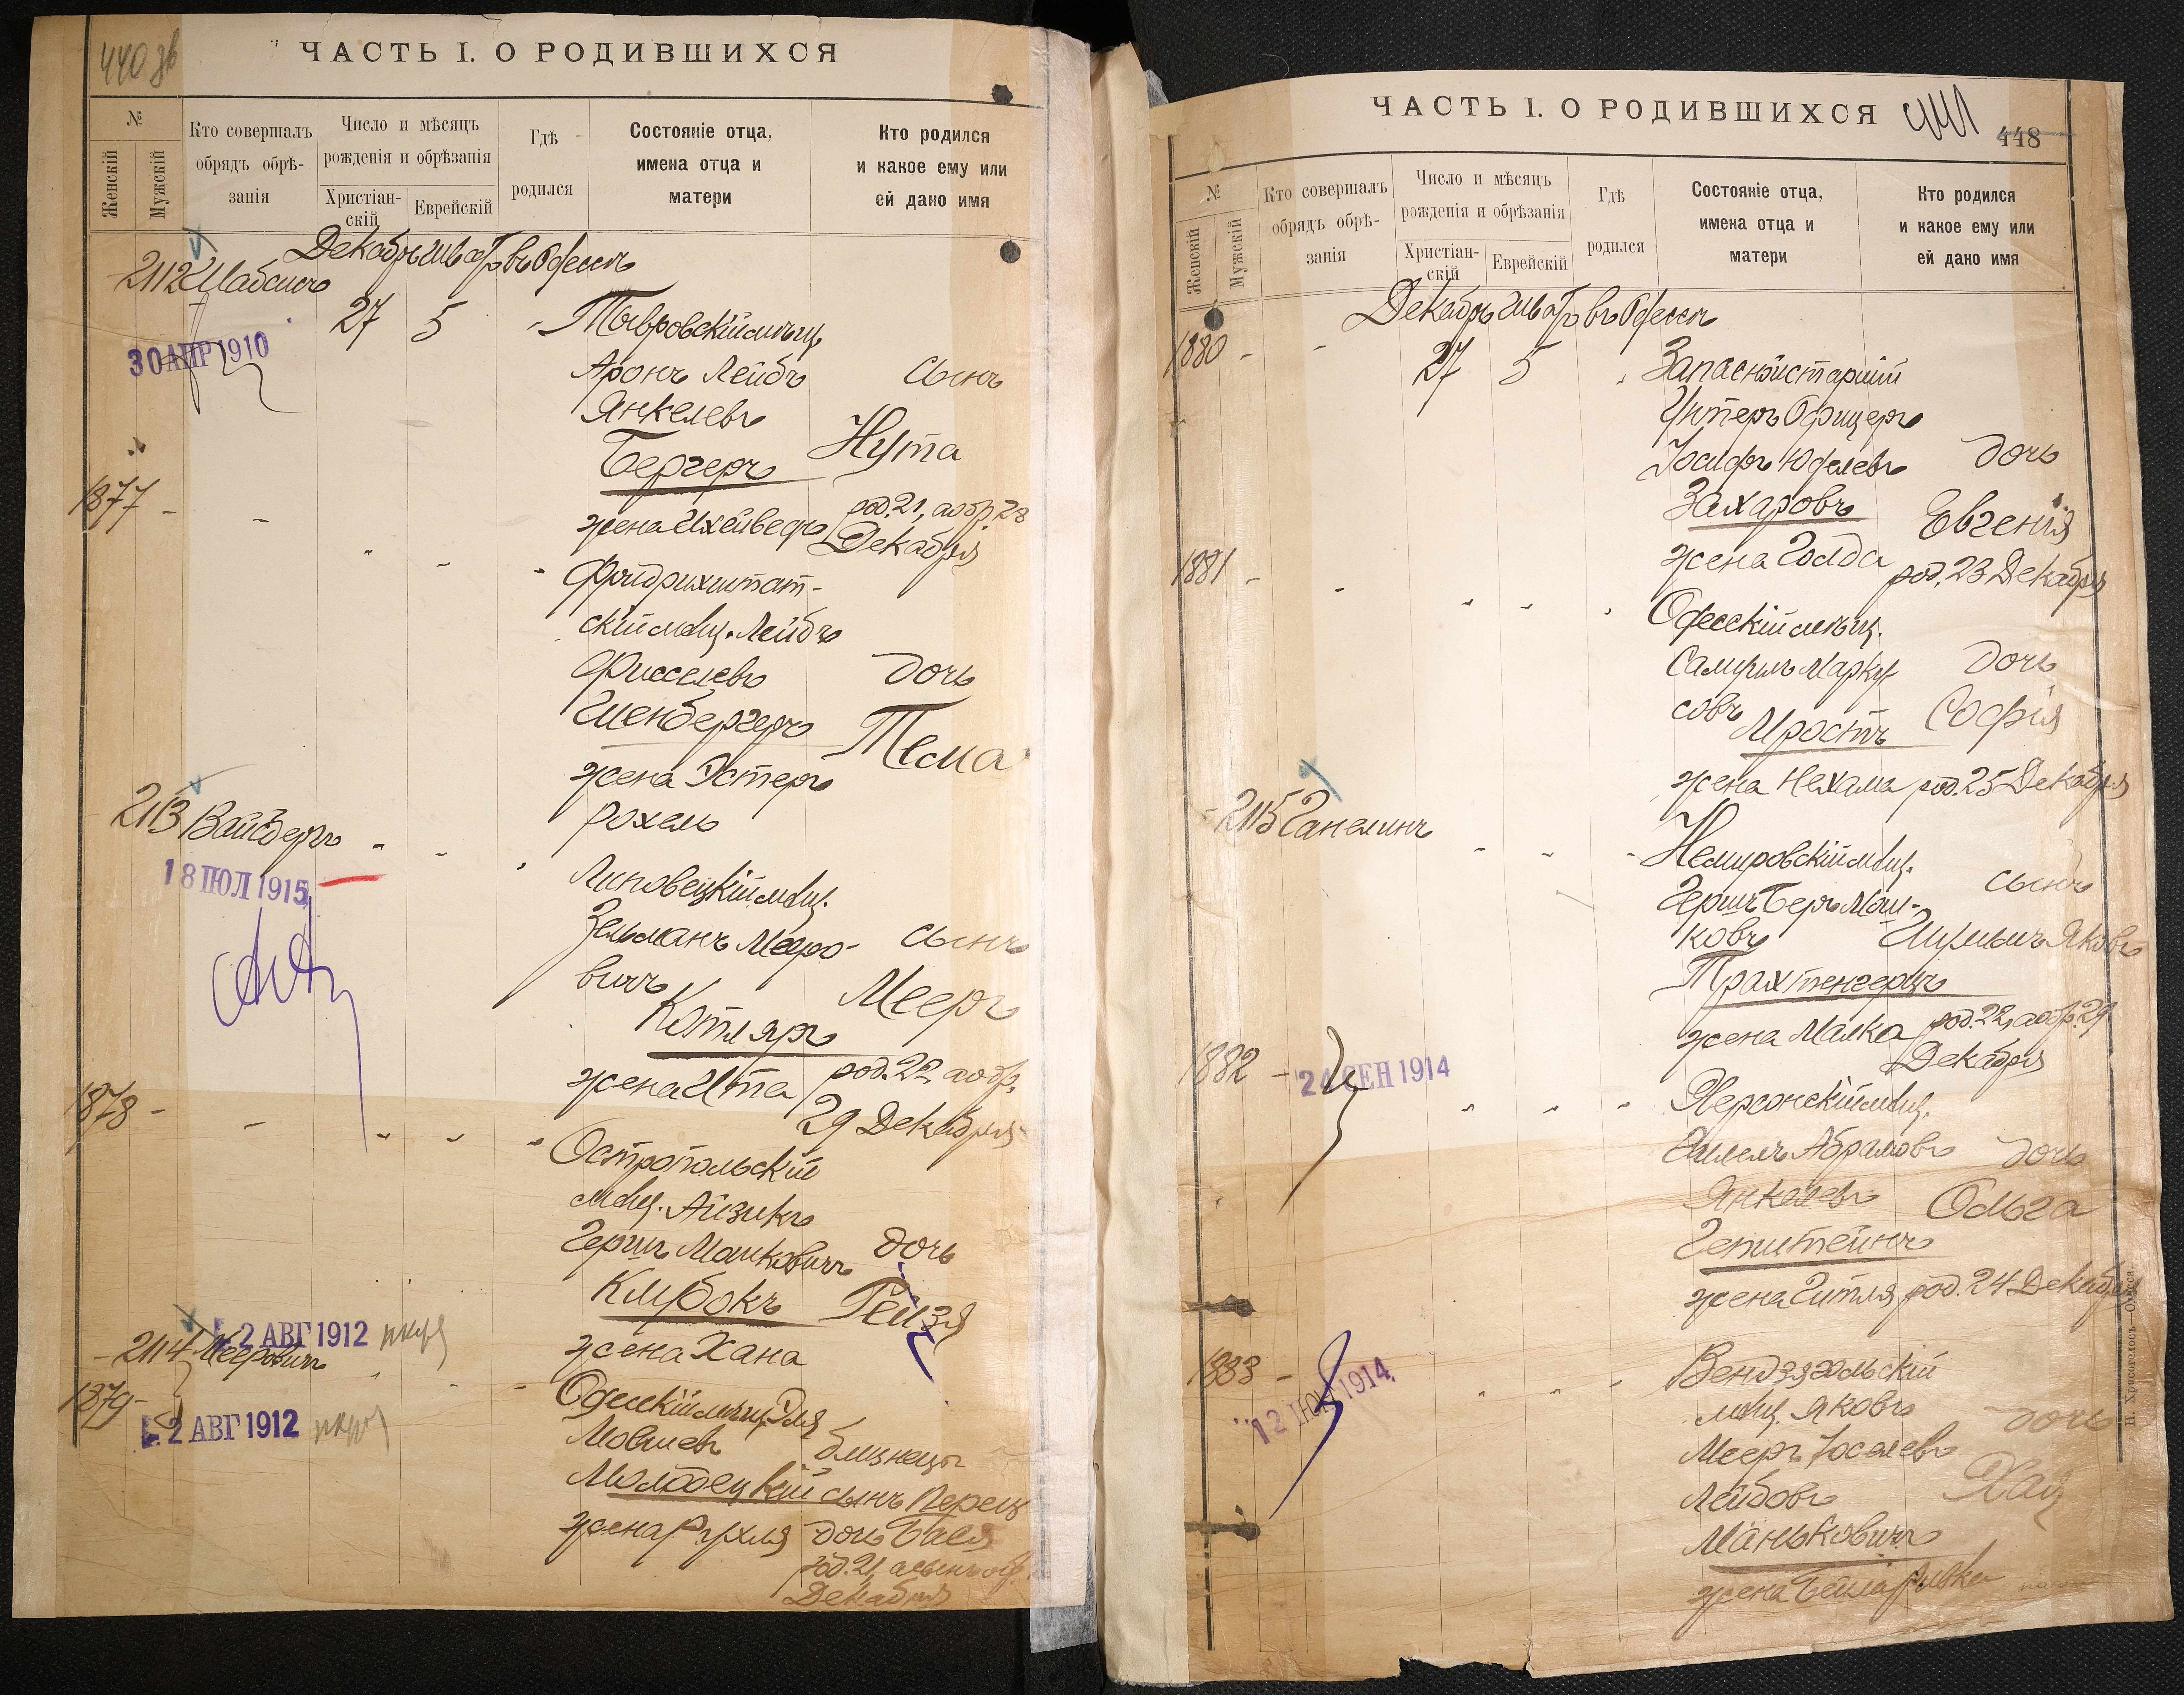 440 об
ЧАСТЬ I. О РОДИВШИХСЯ
№
Женскій
Мужскій
Кто совершалъ обрядъ обрѣ-занія
Число и мѣсяцъ рожденія и обрѣзанія
Христіан-скій
Еврейскій
Гдѣ родился
Состояніе отца, имена отца и матери
Кто родился и какое ему или ей дано имя
Декабрь Шватъ въ Одессѣ
2112 Шабсисъ
27 5
30 АПР 1910
Тывровскій мѣщ.
Аронъ Лейбъ
сынъ
Янкелевъ
Нута
Бергеръ
жена Ихейведъ
род. 21, а обр. 28
Декабря
1877
Фридрихштат-
скій мѣщ. Лейбъ
Фиселевъ
дочь
Шенбергеръ
Тема
жена Эстеръ
Рохель
2113 Вайсбергъ
18 ІЮЛ 1915
Липовецкій мѣщ.
Зельманъ Мееро-
сынъ
вичъ
Мееръ
Котляръ
жена Ита
род. 22, а обр.
29 Декабря
1878
Остропольскій
мѣщ. Айзикъ
Гершъ Машковичъ
дочь
Клубокъ
Рейзя
жена Хана
2 АВГ 1912
2114 Мееровичъ
1879
2 АВГ 1912
Одесскій мѣщ. Эля
Мовшевъ
близнецы
Молодецкій
сынъ Перецъ
жена Рухля
дочь Бася
род. 21, а сынъ обр.
Декабря
ЧАСТЬ I. О РОДИВШИХСЯ
441
448
№
Женскій
Мужскій
Кто совершалъ обрядъ обрѣ-занія
Число и мѣсяцъ рожденія и обрѣзанія
Христіан-скій
Еврейскій
Гдѣ родился
Состояніе отца, имена отца и матери
Кто родился и какое ему или ей дано имя
Декабрь Шватъ въ Одессѣ
1880
27 5
Запасной старшій
Унтеръ Офицеръ
Іосифъ Юделевъ
дочь
Захаровъ
Евгенія
жена Голда
род. 23 Декабря
1881
Одесскій мѣщ.
Самуилъ Марку-
дочь
совъ
Софія
Мростъ
жена Нехама
род. 25 Декабря
2115 Ганелинъ
Немировскій мѣщ.
сынъ
Гершъ Беръ Мош-
ковъ
Яковъ
Трахтенгерцъ
жена Малка
род. 22, а обр. 29
Декабря
1882
24 СЕН 1914
Херсонскій мѣщ.
Абрамовъ
дочь
Янкелевъ
Ольга
Гепштейнъ
жена Гитля
род. 24 Декабря
1883
12 1914
мѣщ. Яковъ
дочь
Мееръ Іоселевъ
Лейбовъ
Маньковичъ
жена Бейла Ривка
П. Хрисогелосъ—Одесса.